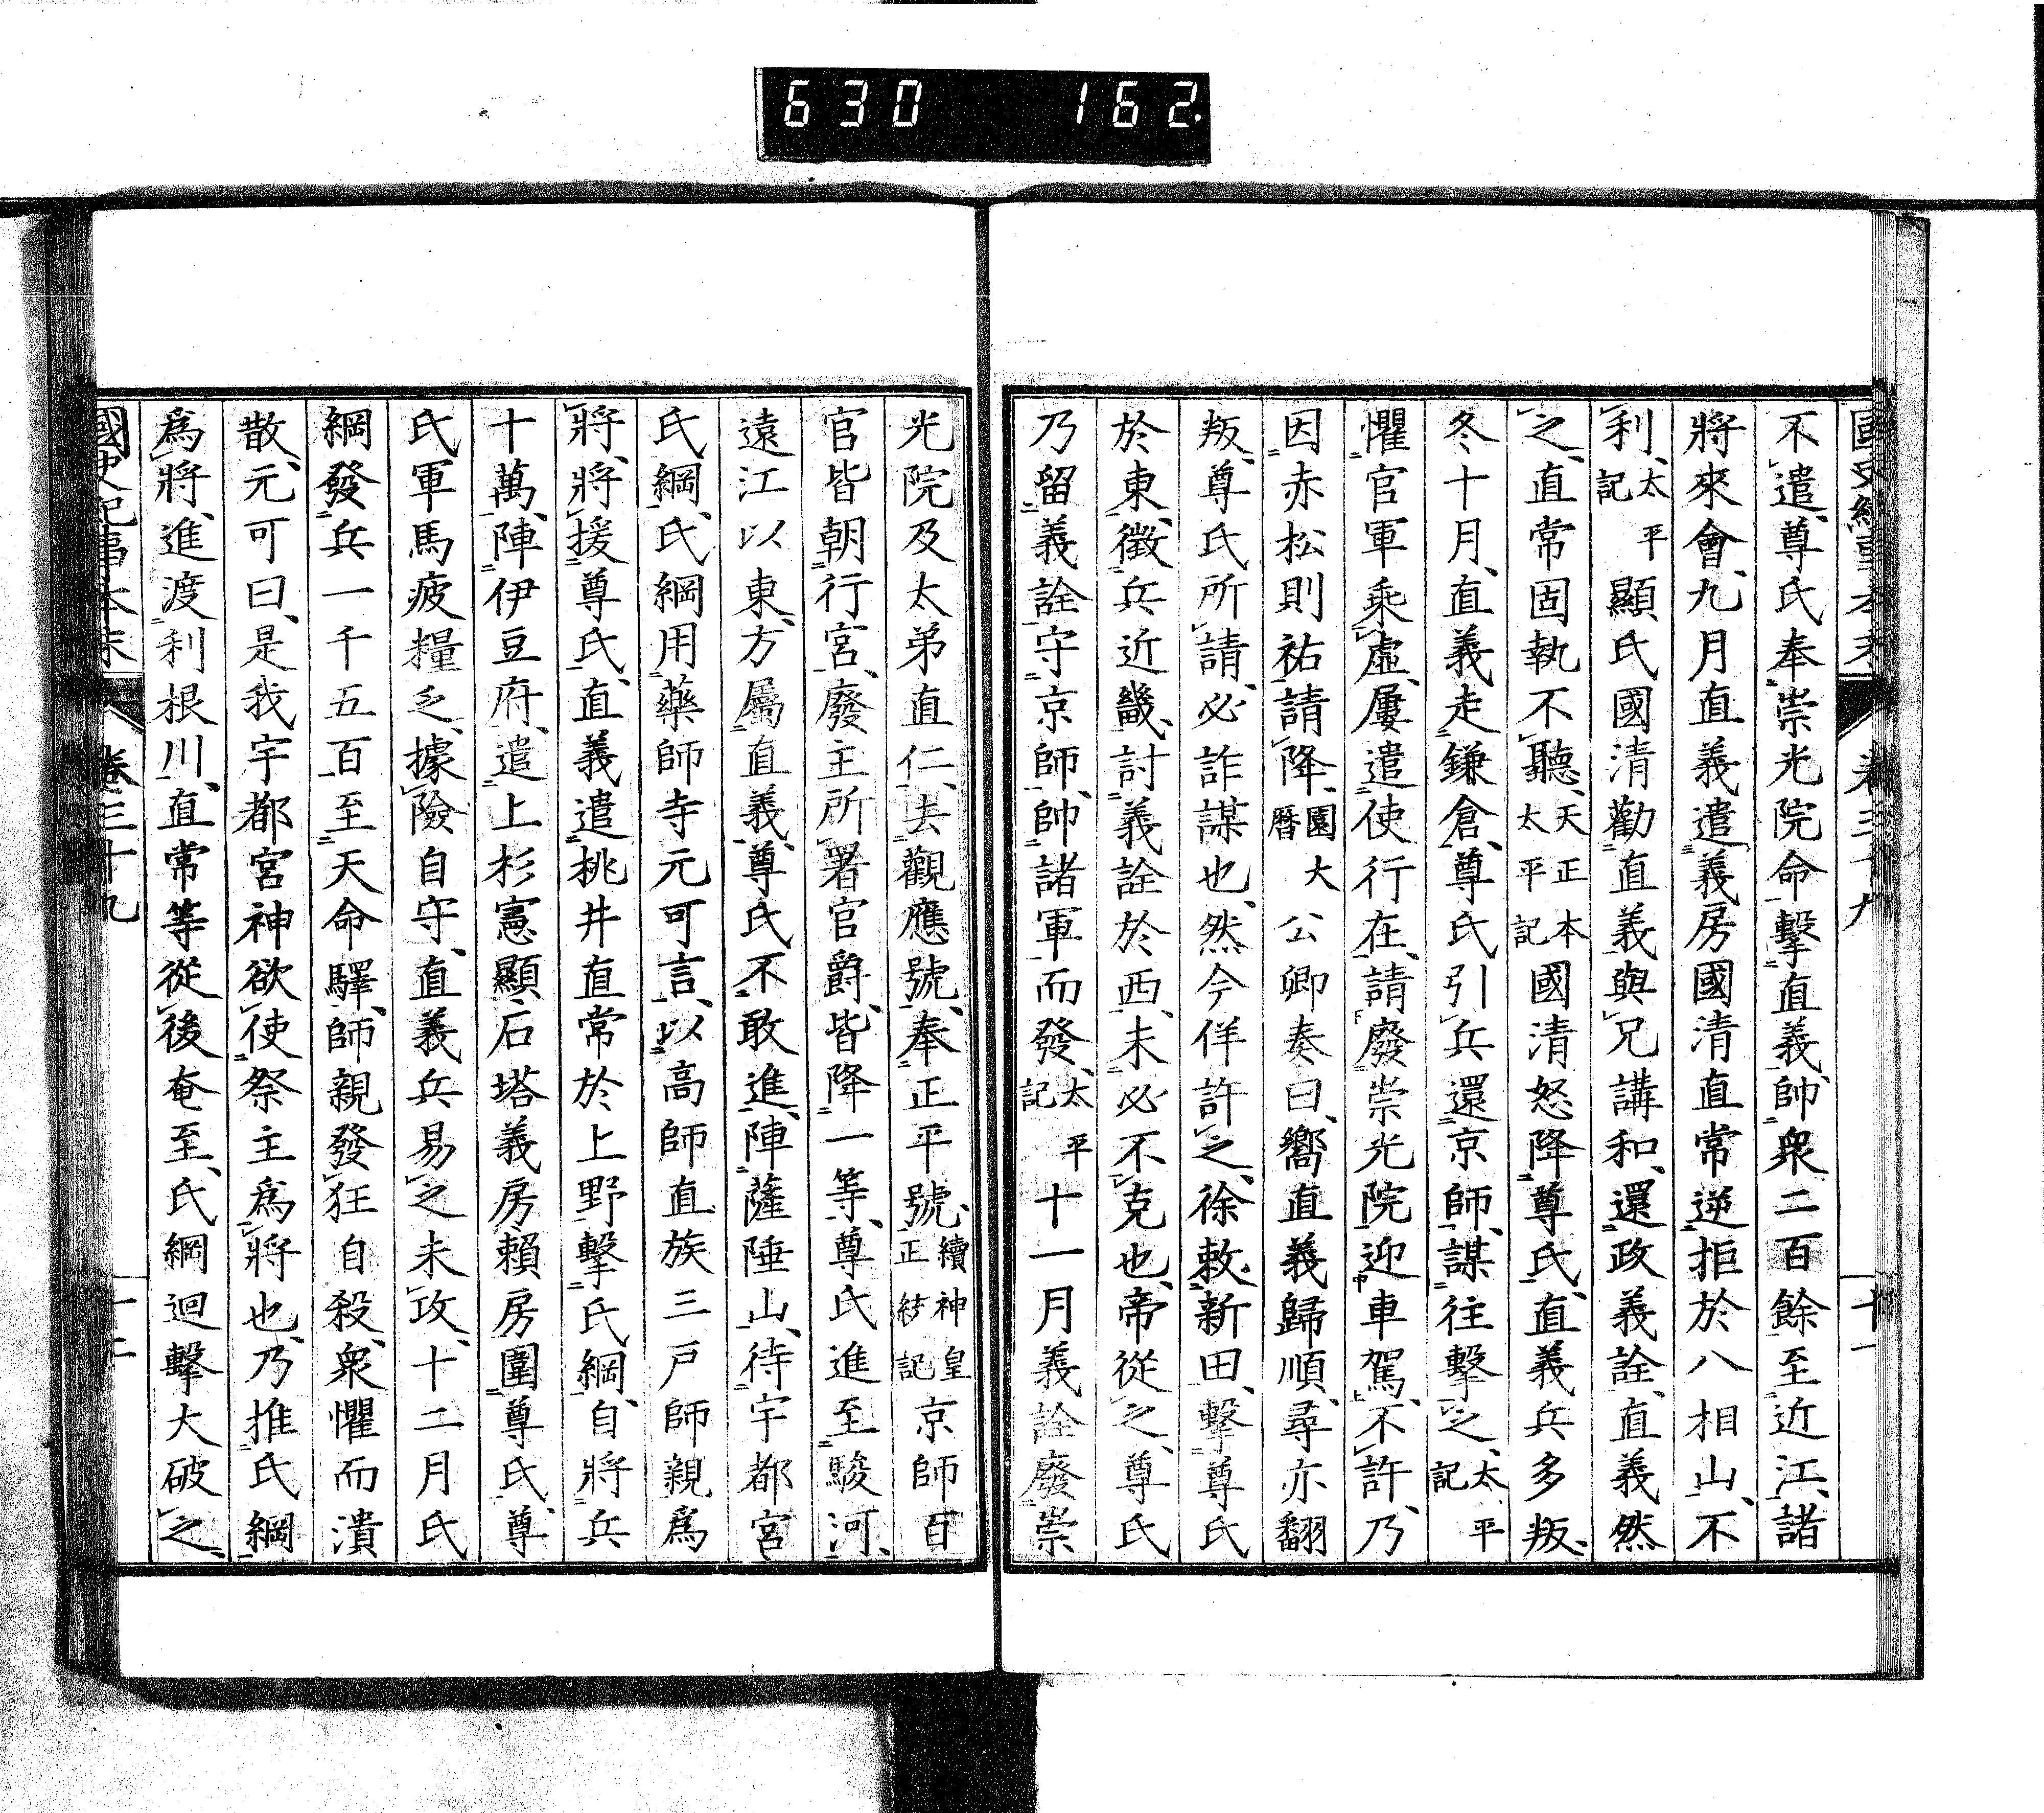 630 162.
國史紀事本末 卷三十九 十一
不遣、尊氏奉崇光院命、擊直義、帥衆二百餘至近江、諸
將來會、九月直義遣義房國清直常逆拒於八相山、不
利、太平記 顯氏國清勸直義與兄講和、還政義詮、直義然
之、直常固執不聽、天正本太平記 國清怒降尊氏、直義兵多叛、
冬十月、直義走鎌倉、尊氏引兵還京師、謀往擊之、太平記
懼官軍乘虛、屢遣使行在、請廢崇光院迎車駕、不許、乃
因赤松則祐請降、園大曆 公卿奏曰、嚮直義歸順、尋亦翻
叛、尊氏所請、必詐謀也、然今佯許之、徐敕新田、擊尊氏
於東、徵兵近畿、討義詮於西、未必不克也、帝從之、尊氏
乃留義詮守京師、帥諸軍而發、太平記 十一月義詮廢崇
光院及太弟直仁、去觀應號、奉正平號、續神皇正統記 京師百
官皆朝行宮、廢主所署官爵、皆降一等、尊氏進至駿河、
遠江以東、方屬直義、尊氏不敢進、陣薩埵山、待宇都宮
氏綱、氏綱用藥師寺元可言、以高師直族三戸師親爲
將、將援尊氏、直義遣桃井直常於上野擊氏綱、自將兵
十萬、陣伊豆府、遣上杉憲顯石塔義房賴房圍尊氏、尊
氏軍馬疲糧乏、據險自守、直義兵易之未攻、十二月氏
綱發兵一千五百至天命驛、師親發狂自殺、衆懼而潰
散、元可曰、是我宇都宮神欲使祭主爲將也、乃推氏綱
爲將、進渡利根川、直常等從後奄至、氏綱迴擊大破之、
國史紀事本末 卷三十九 十二